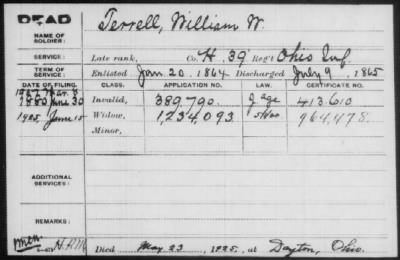 DEAD
NAME OF SOLDIER: Terrell, William W.
SERVICE: Late rank, Co. H. 39 Reg't Ohio Inf.
TERM OF SERVICE: Enlisted Jan. 20. 1864. Discharged July 9, 1865
DATE OF FILING. CLASS. APPLICATION NO. LAW. CERTIFICATE NO.
1880 June 30 Invalid, 389,790. 413.610
1925. June 15 Widow, 1,234,093. 964,478.
Minor,
ADDITIONAL SERVICES:
REMARKS:
Died May 23, 1925, at Dayton, Ohio.